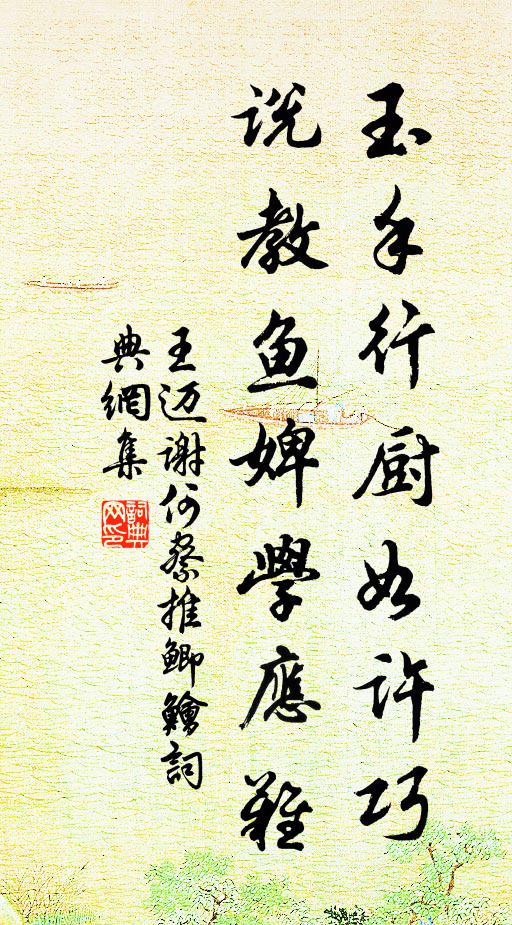 玉手行厨如许巧
说教鱼婢學應難
王迈谢何察推鲫鱠詞
典網集
詞典网印